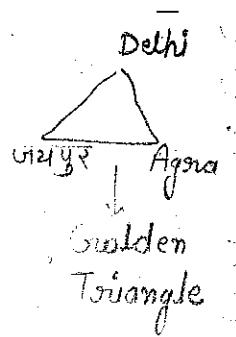 Delhi
जयपुर Agra
Golden
Triangle